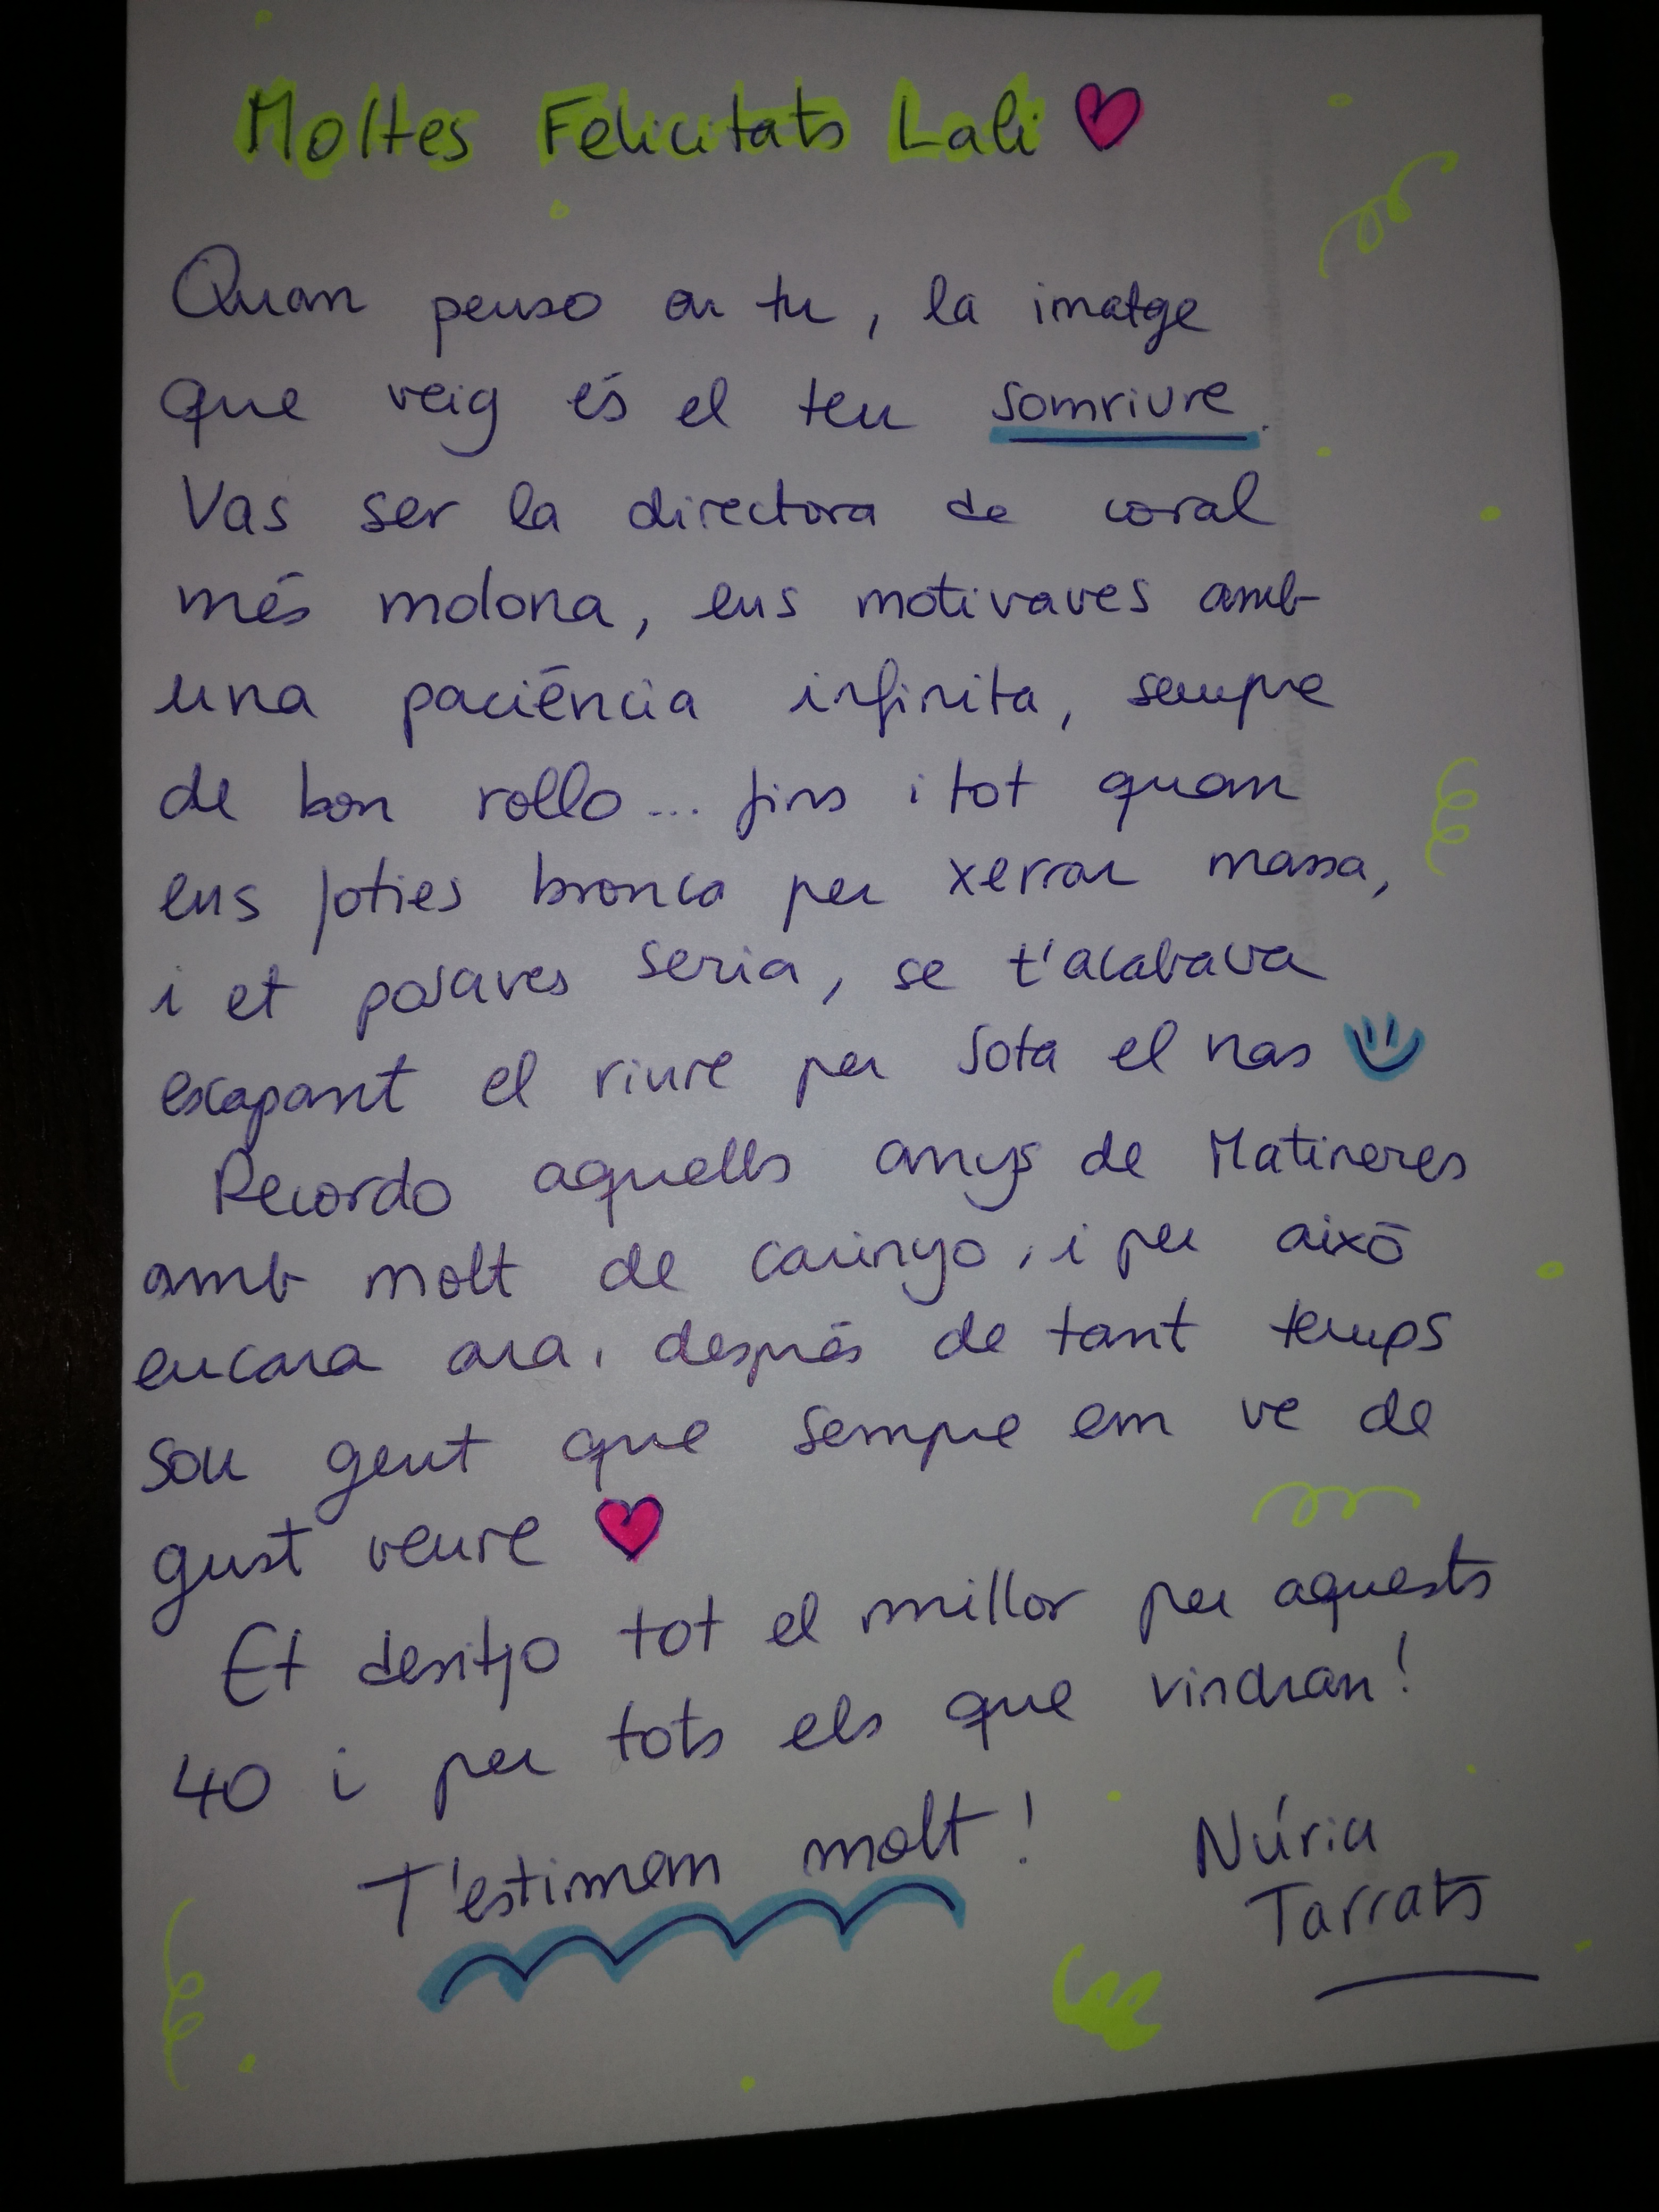 Moltes Felicitats Lali ♥
Quan penso en tu, la imatge
que veig és el teu somriure.
Vas ser la directora de coral
més molona, ens motivaves amb
una paciència infinita, sempre
de bon rollo... fins i tot quan
ens foties bronca per xerrar massa,
i et posaves seria, se t'acabava
escapant el riure per sota el nas
Recordo aquells anys de Matineres
amb molt de carinyo, i per això
encara ara, després de tant temps
sou gent que sempre em ve de
gust veure ♥
Et desitjo tot el millor per aquests
40 i per tots els que vindran!
T'estimem molt!
Núria
Tarrats